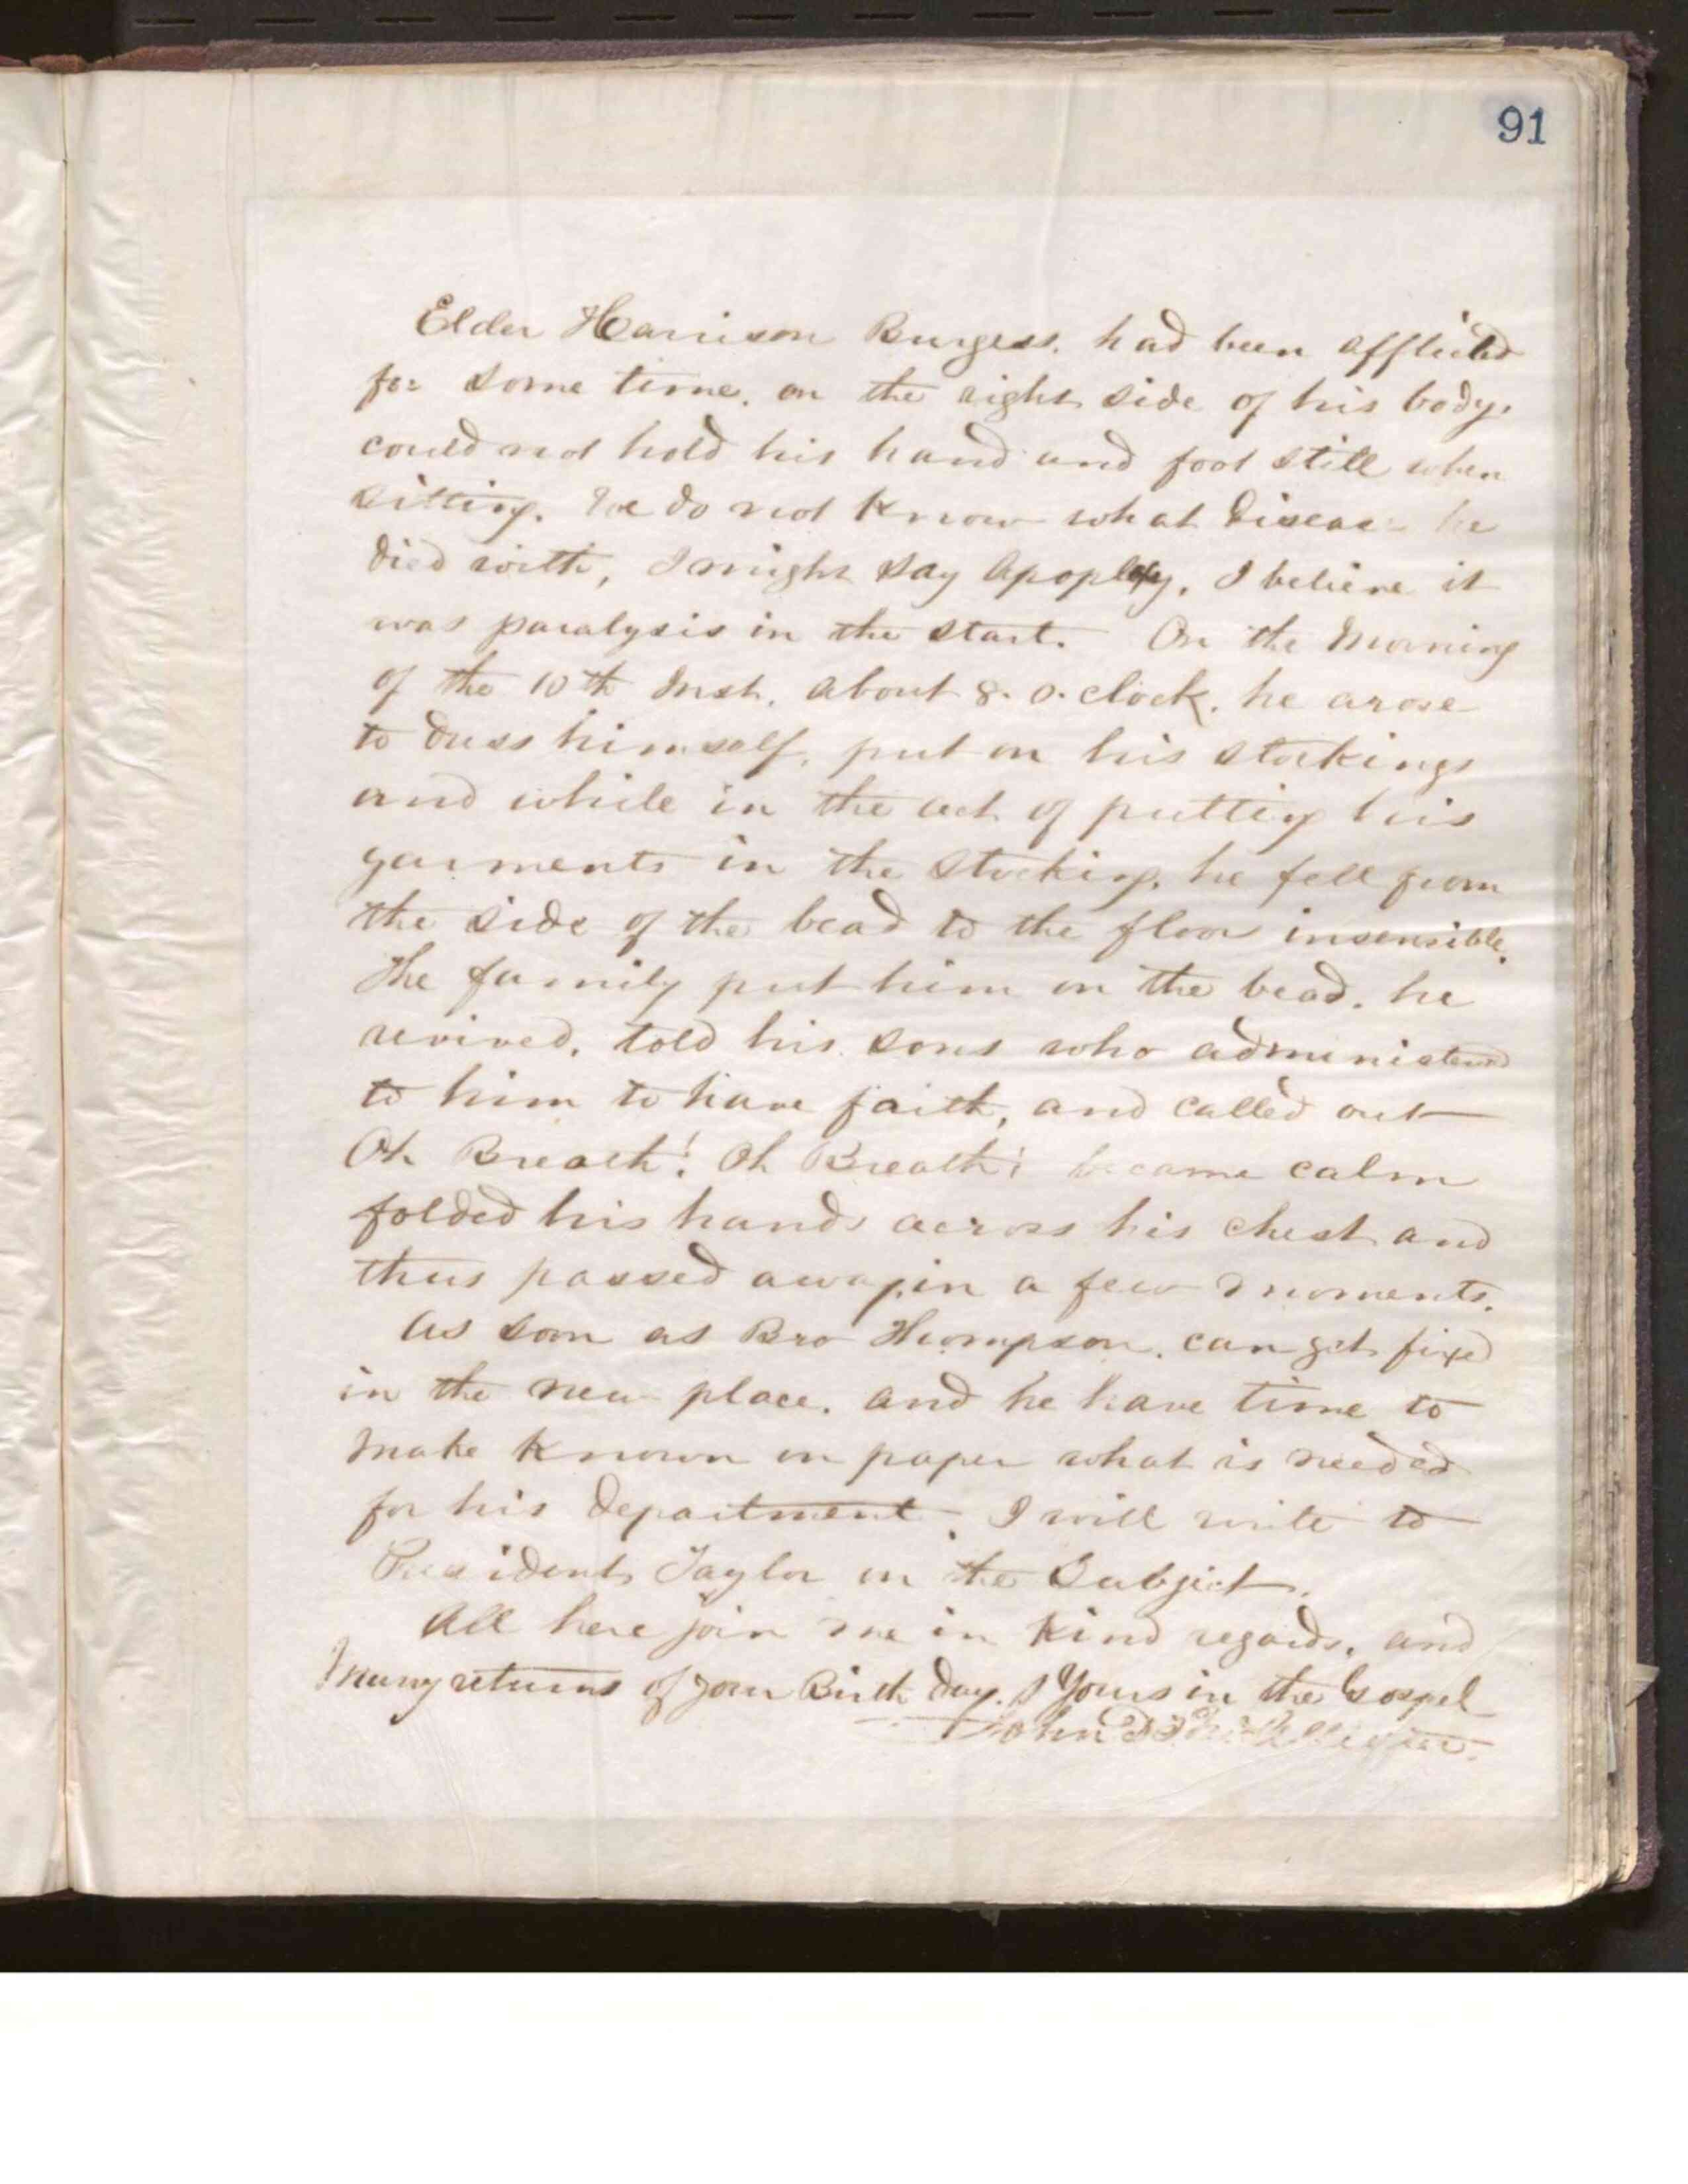 91
Elder Harrison Burgess. had been afflicted
for some time. on the right side of his body.
could not hold his hand and foot still when
sitting. We do not Know what Disease he
died with, I might say Apoplexy, I believe it
was paralysis in the start. On the Morning
of the 10th Inst. about 8. o. clock. he arose
to dress himself, put on his stockings
and while in the act of putting his
garments in the stocking. he fell from
the side of the bead to the floor insensible.
The family put him on the bead. he
revived. told his sons who administered
to him to have faith, and called out
Oh Breath! Oh Breath! became calm
folded his hands across his chest and
thus passed away, in a few moments.
As soon as Bro Thompson. can get fixed
in the new place. and he have time to
make Known on paper what is needed
for his Department. I will write to
President Taylor on the Subject.
All here join me in Kind regards, and
Many returns of your Birth day. Yours in the Gospel
John D. T. McAllister.